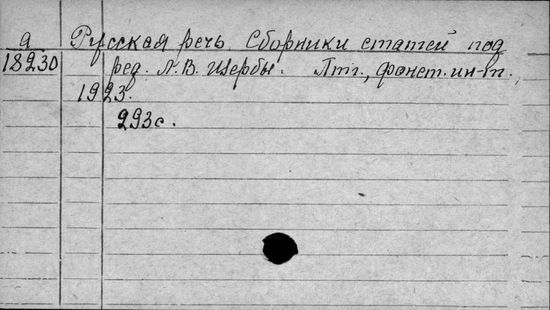 а Русская речь Сборники статей под
18230 ред. Л.В. Щербы. Птг., фонет. ин-т.,
1923.
293с.